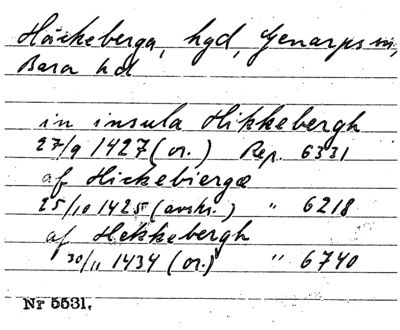 Häckeberga, hgd, Genarps sn,
Bara hd
in insula Hikkebergh
27/9 1427 (or.) Rep. 6331
af Hickebiergæ
25/10 1425 (avskr.) " 6218
af Hekkebergh
30/11 1434 (or.) " 6740
Nr 5531.